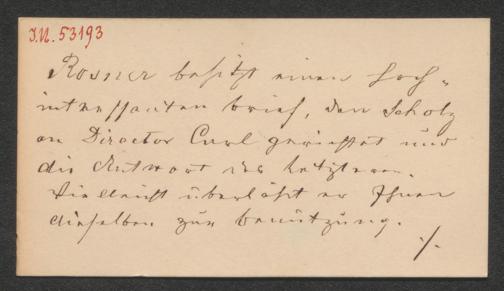 I.N. 53193
Rosner besitzt einen hoch-
interessanten Brief, den Scholz
an Director Carl gerichtet und
die Antwort des Letzteren.
Vielleicht überläßt er Ihnen
dieselben zur Benützung.
./.